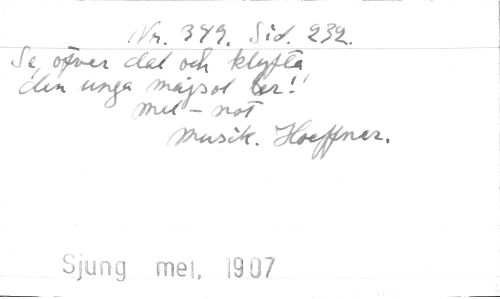 Nr. 349. Sid. 232.
Se, öfver dal och klyfta
den unga majsol ler!"
mel - not
Musik. Hoeffner.
Sjung mei, 1907